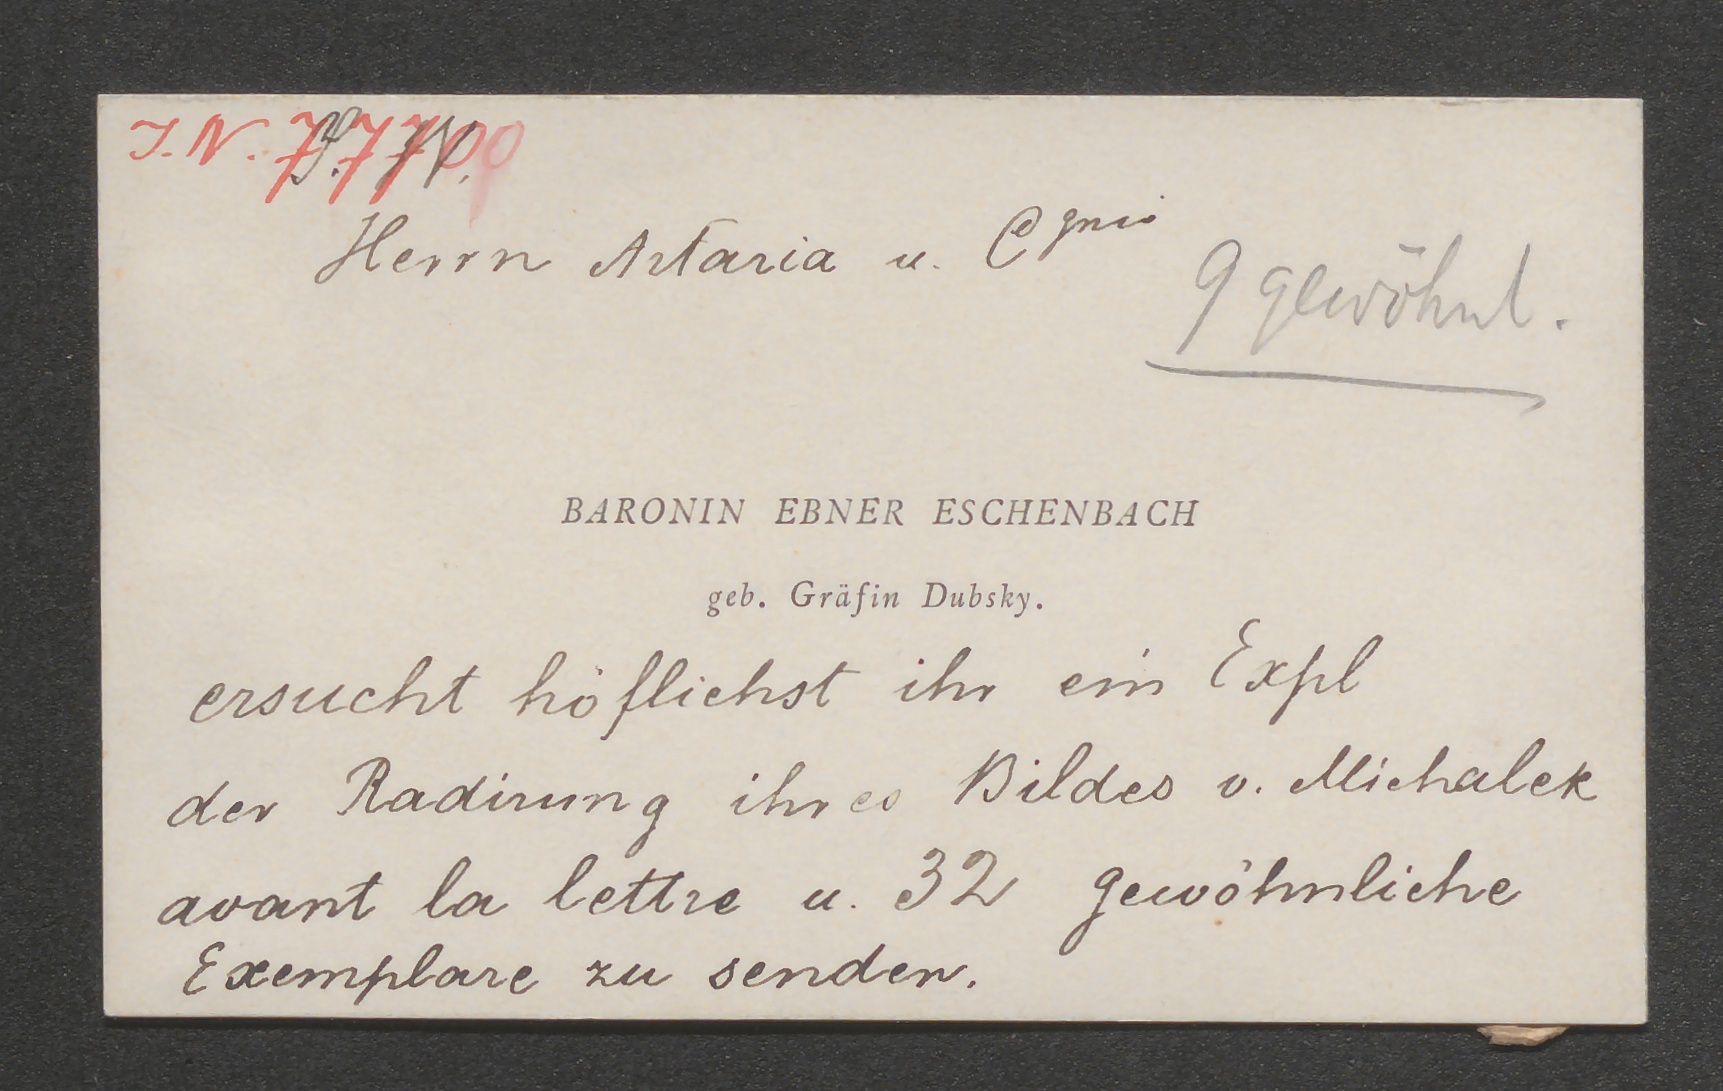 J.N.
Herrn Artaria u. Cgnie
9 gewöhnl.
BARONIN EBNER ESCHENBACH
geb. Gräfin Dubsky.
ersucht höflichst ihr ein Expl
der Radirung ihres Bildes v. Michalek
avant la lettre u. 32 gewöhnliche
Exemplare zu senden.